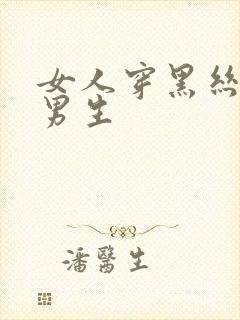 女人穿黑絲
男生
潘醫生